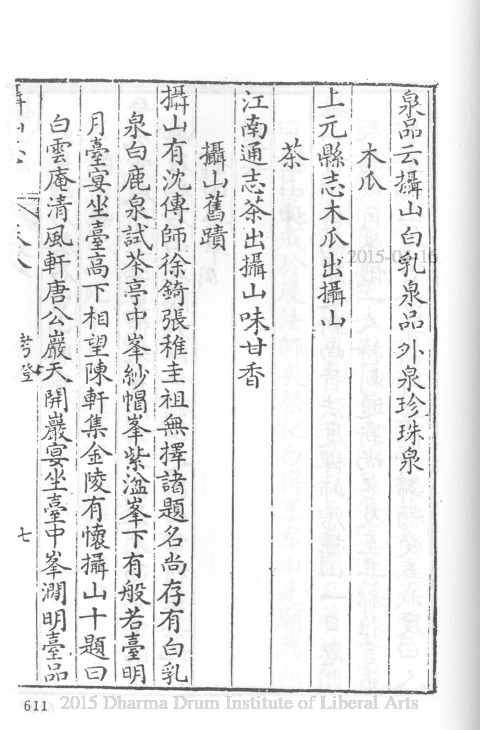 泉品云攝山白乳泉品外泉珍珠泉
木瓜
上元縣志木瓜出攝山
茶
江南通志茶出攝山味甘香
攝山舊蹟
攝山有沈傳師徐錡張稚圭祖無擇諸題名尚存有白乳
泉白鹿泉試茶亭中峯紗帽峯紫溢峯下有般若臺明
月臺宴坐臺高下相望陳軒集金陵有懷攝山十題曰
白雲庵清風軒唐公巖天開巖宴坐臺中峯澗明臺品
攝山志
七
611
2015-04-16
2015 Dharma Drum Institute of Liberal Arts